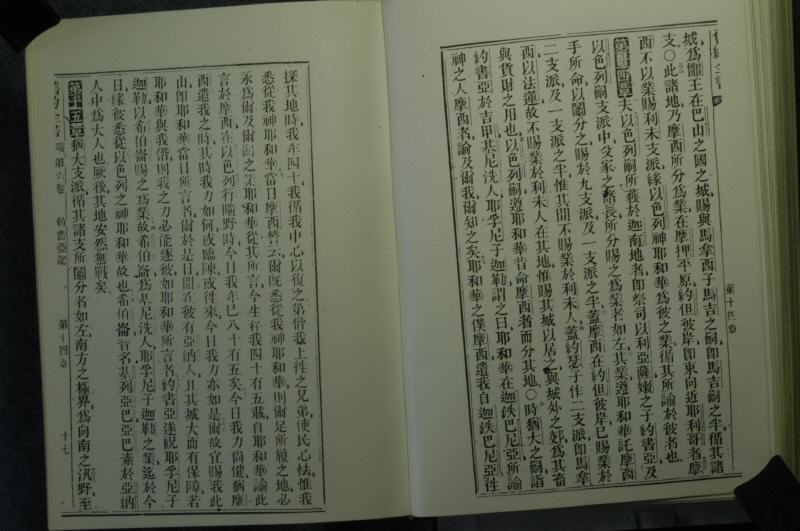 舊約全書
第十四章
城、爲噩王在巴山之國之城、賜與馬拿西子馬吉之嗣、卽馬吉嗣之半、循其諸
支、○此諸地乃摩西所分爲業、在摩押平原、約但彼岸、卽東向近耶利哥者、摩
西不以業賜利未支派、緣以色列神耶和華爲彼之業、循其所諭於彼者也、
第十四章 夫以色列嗣所獲於迦南地者、卽祭司以利亞薩、嫩之子約書亞、及
以色列嗣支派中父家之諸長、所分賜之爲業者如左、其業遵耶和華託摩西
手所命、以鬮分之、賜於九支派、及一支派之半、蓋摩西在約但彼岸、已賜業於
二支派、及一支派之半、惟其間不賜業於利未人、蓋約瑟子作二支派、卽馬拿
西以法蓮、故不賜業於利未人在其地、惟賜其城以居之、與城外之郊爲其畜
與貨財之用也、以色列嗣遵耶和華昔命摩西者、而分其地、○時猶大之嗣詣
約書亞於吉甲、基尼洗人耶孚尼子迦勒謂之曰、耶和華在迦鉄巴尼亞所諭
神之人摩西者、論及爾我、爾知之矣、耶和華之僕摩西遣我自迦鉄巴尼亞往
探其地時、我年四十、我循我中心以復之、第偕我上往之兄弟使民心怯、惟我
悉從我神耶和華、當日摩西誓云、爾旣悉從我神耶和華、則爾足所履之地、必
永爲爾及爾嗣之業、耶和華從其所言、今生存我四十有五載、自耶和華諭此
言於摩西、在以色列行曠野時、今日我年巳八十有五矣、今日我力尙健、猶摩
西遣我之時、其時我力如何、或臨陳、或往來、今日我力亦如是、爾故宜賜我此
山、卽耶和華當日所言者、爾於是日聞在彼有亞納人、且其城大而有保障、若
耶和華與我偕、則我之力必能逐彼、如耶和華所言者、約書亞遂祝耶孚尼子
迦勒、以希伯崙賜之爲業、故希伯崙爲基尼洗人耶孚尼子迦勒之業、迄於今
日、緣彼悉從以色列之神耶和華故也、希伯崙昔名基列亞巴、亞巴素於亞納
人中爲大人也、厥後其地安然無戰矣、
第十五章 猶大支派、循其諸支所鬮分者如左、南方之極界、爲向南之汛野、至
舊約全書 第六卷 約書亞記 第十四章 十七